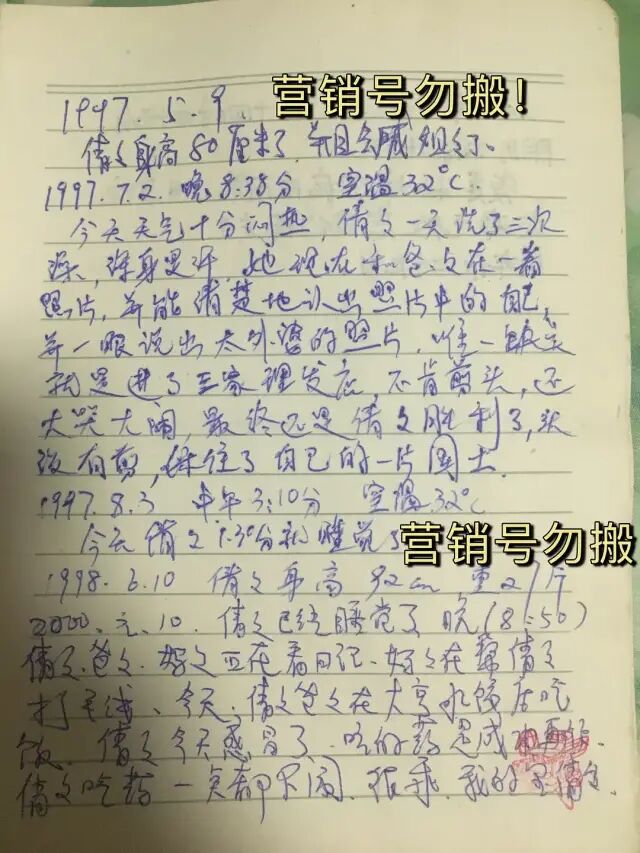 营销号勿搬!
1997.5.9.
倩文身高80厘米了,并且会喊姐了。
1997.7.2. 晚8:38分 室温32℃.
今天天气十分闷热,倩文一天洗了三次
澡,浑身是汗,她现在和爸文在一看
照片,并能清楚地认出照片中的自己,
并一眼说出太外婆的照片,唯一缺点
就是进了三家理发店,不肯剪头,还
大哭大闹,最终还是倩文胜利了,头
没有剪,保住了自己的一片国土.
1997.8.3 中午3:10分 室温32℃
今天倩文1.30分就睡觉了
营销号勿搬
1998.6.10 倩文身高92cm 重27斤
2000.元.10. 倩文已经睡觉了 晚(8:50)
倩文爸文.妈文正在看日记.妈文在帮倩文
打毛线.今天.倩文爸文在大亨水饺店吃
饭.倩文今天感冒了.吃的药是
倩文吃药一点都不闹.很乖.我的宝倩文.